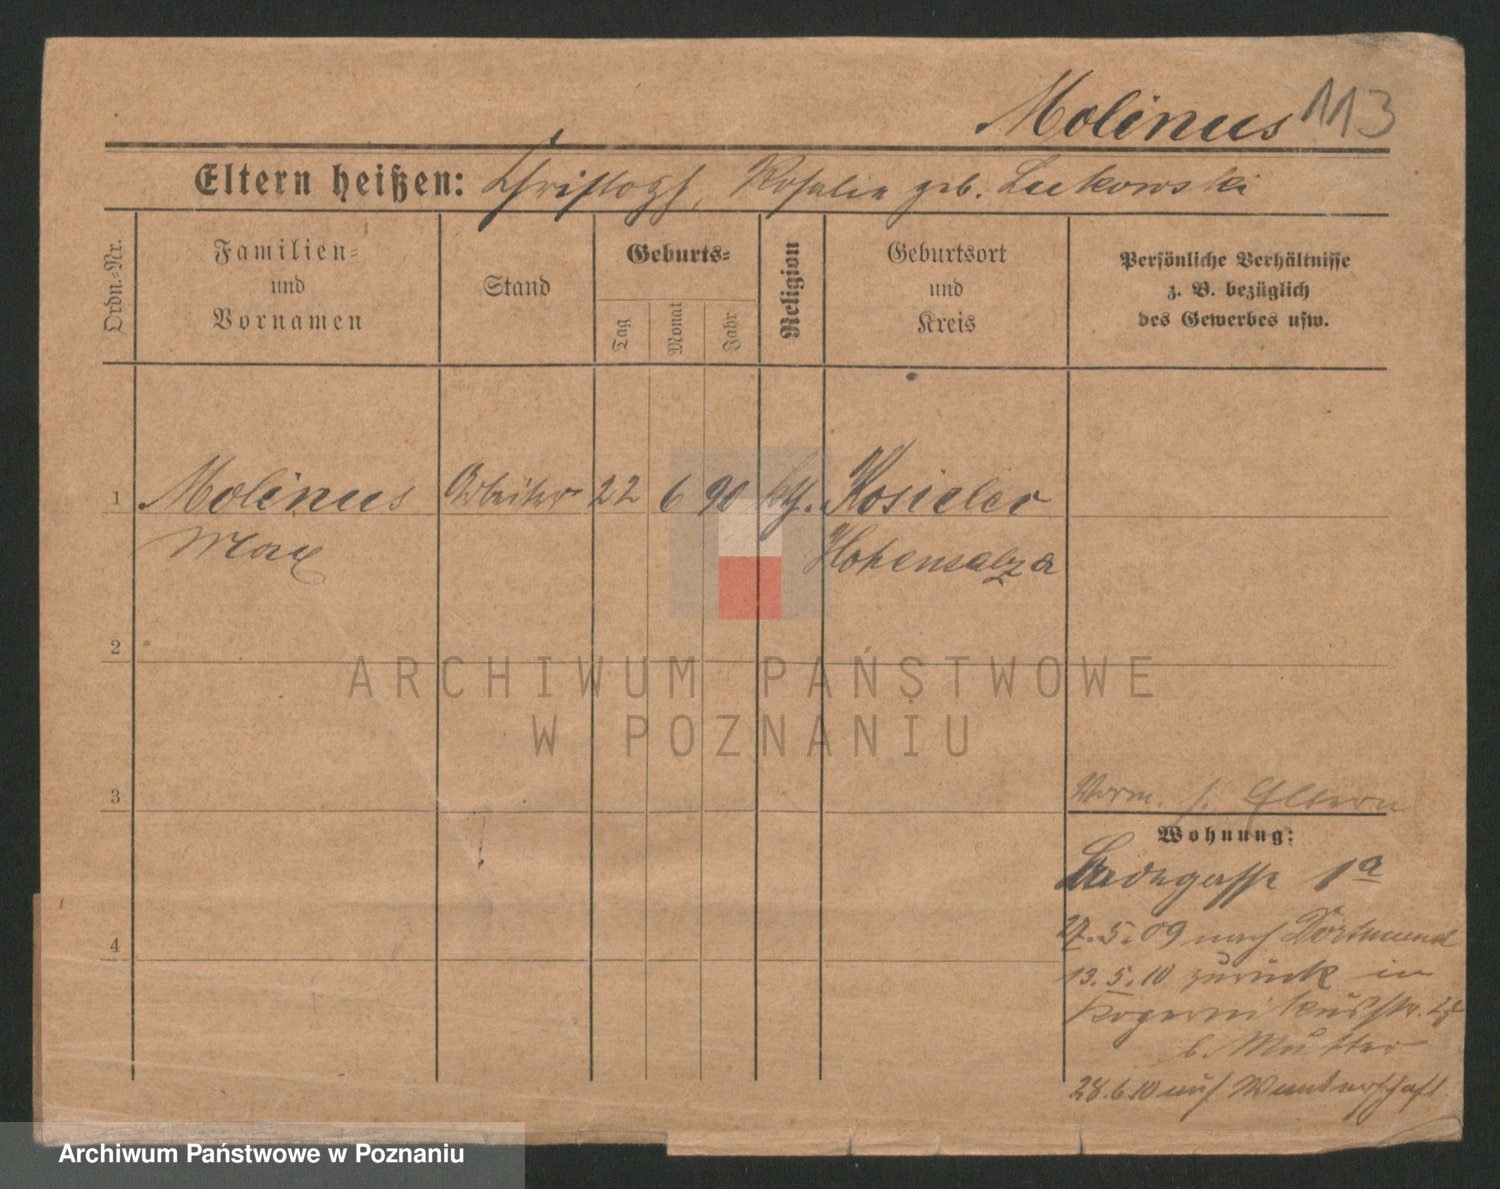 Molinus 113
Eltern heißen: Christoph, Rosalie geb. Lukowski
Ordn.-Nr.
Familien-
und
Vornamen
Stand
Geburts-
Tag
Monat
Jahr
Religion
Geburtsort
und
Kreis
Persönliche Verhältnisse
z. B. bezüglich
des Gewerbes usw.
1 Molinus Arbeiter 22 6 90 kth. Kosielec
Max Hohensalza
2
ARCHIWUM PAŃSTWOWE
W POZNANIU
3
Vorm. s. Eltern
Wohnung:
1a
4
27.5.09 nach Dortmund
13.5.10 zurück in
Kopernikusstr.
b. Mutter
28.6.10 auf Wanderschaft.
Archiwum Państwowe w Poznaniu